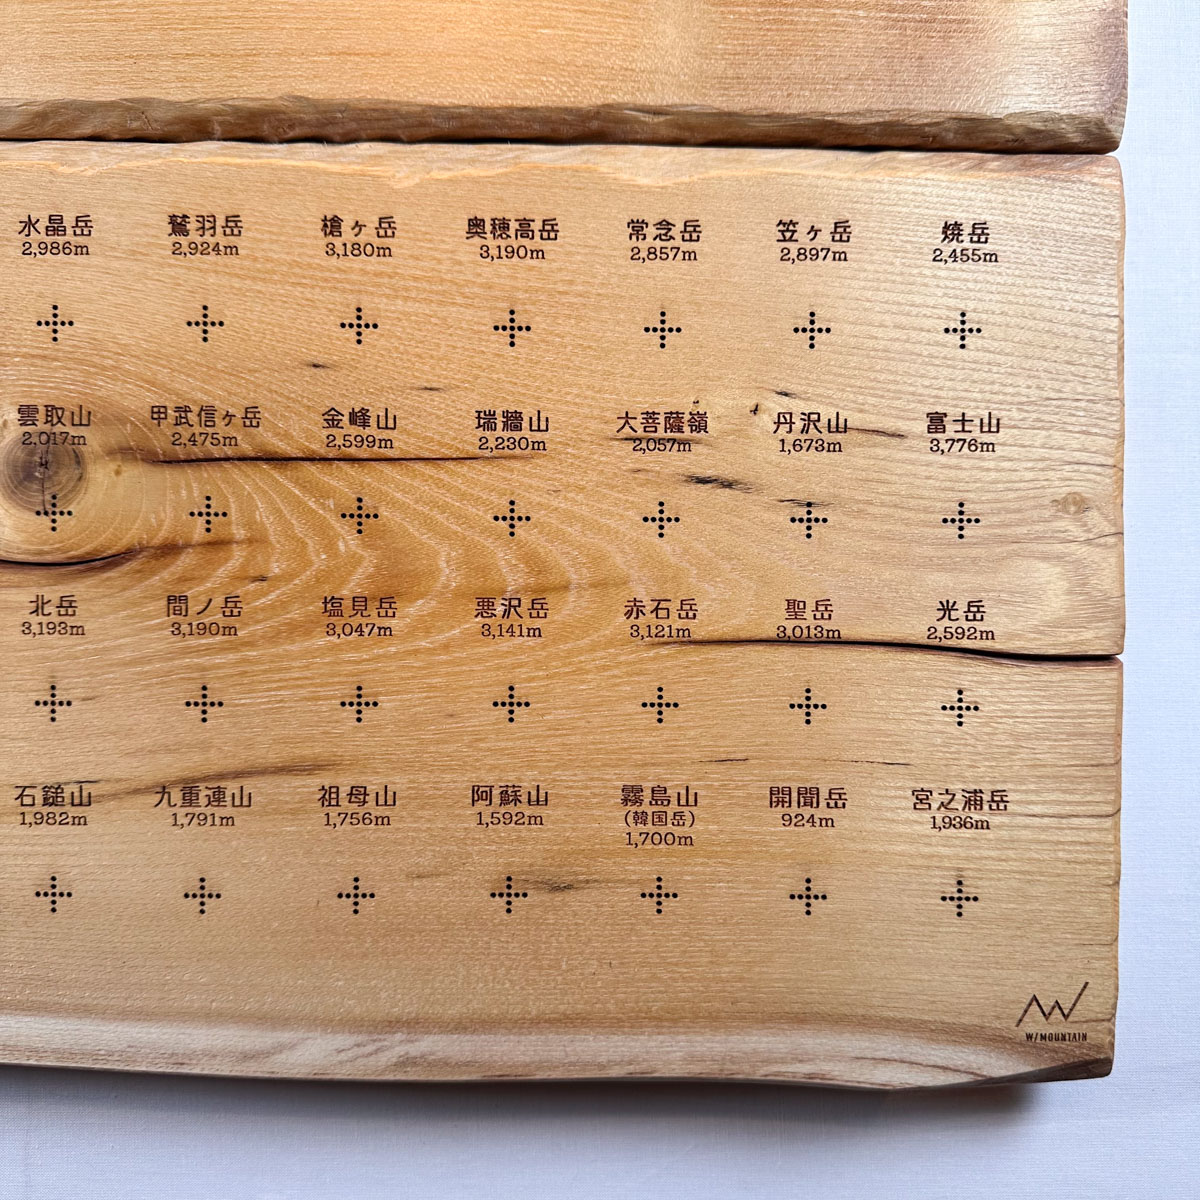 水晶岳 鷲羽岳 槍ヶ岳 奥穂高岳 常念岳 笠ヶ岳 焼岳
2,986m 2,924m 3,180m 3,190m 2,857m 2,897m 2,455m
雲取山 甲武信ヶ岳 金峰山 瑞牆山 大菩薩嶺 丹沢山 富士山
2,017m 2,475m 2,599m 2,230m 2,057m 1,673m 3,776m
北岳 間ノ岳 塩見岳 悪沢岳 赤石岳 聖岳 光岳
3,193m 3,190m 3,047m 3,141m 3,121m 3,013m 2,592m
石鎚山 九重連山 祖母山 阿蘇山 霧島山 開聞岳 宮之浦岳
1,982m 1,791m 1,756m 1,592m (韓国岳) 924m 1,936m
1,700m
W/MOUNTAIN